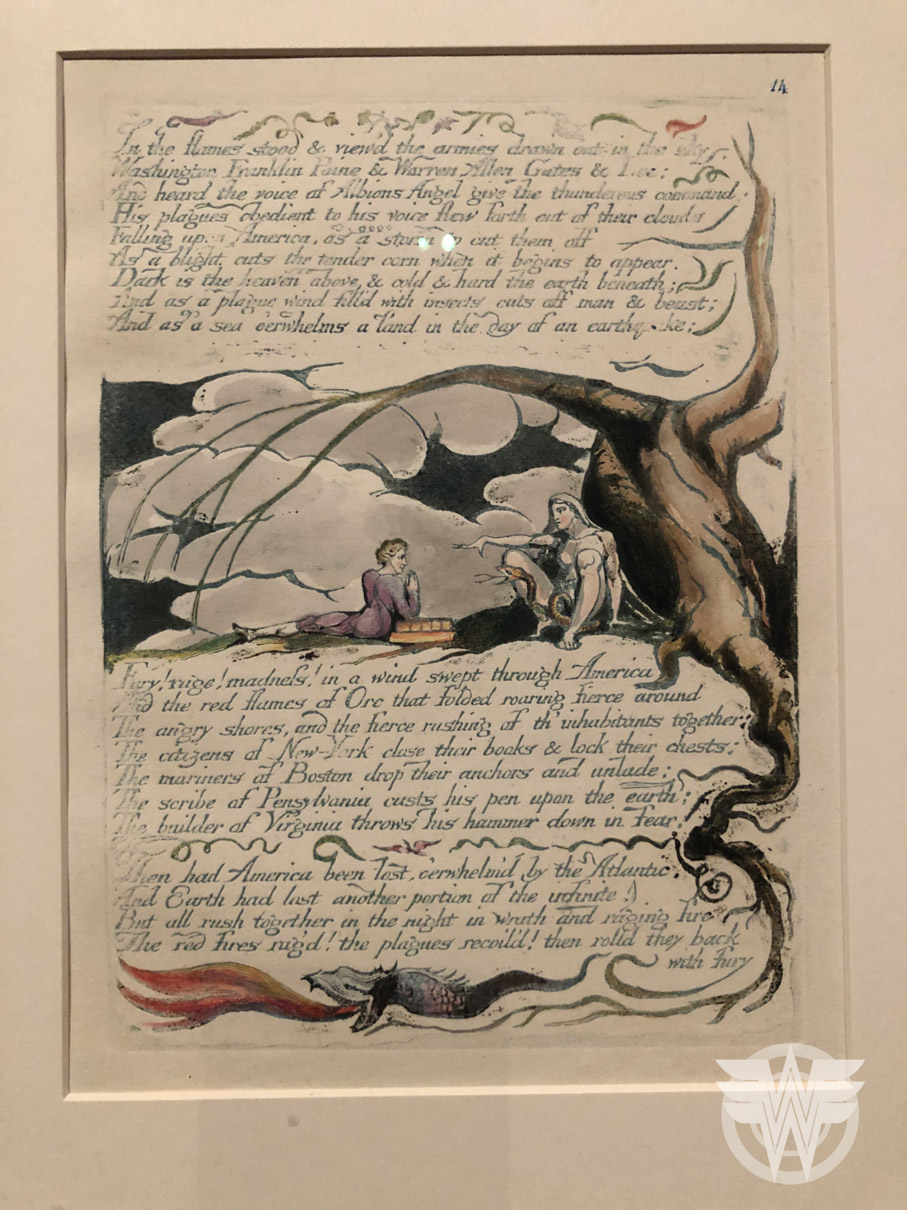 14
In the flames stood & view'd the armies drawn out in the sky
Washington Franklin Paine & Warren Allen Gates & Lee:
And heard the voice of Albions Angel give the thunderous command:
His plagues obedient to his voice flew forth out of their clouds
Falling upon America, as a storm to cut them off
As a blight cuts the tender corn when it begins to appear.
Dark is the heaven above, & cold & hard the earth beneath;
And as a plague wind fill'd with insects cuts off man & beast;
And as a sea o'erwhelms a land in the day of an earthquake;
Fury! rage! madness! in a wind swept through America
And the red flames of Orc that folded roaring fierce around
The angry shores, and the fierce rushing of th'inhabitants together:
The citizens of New-York close their books & lock their chests;
The mariners of Boston drop their anchors and unlade;
The scribe of Pensylvania casts his pen upon the earth;
The builder of Virginia throws his hammer down in fear.
Then had America been lost, o'erwhelm'd by the Atlantic,
And Earth had lost another portion of the infinite,
But all rush together in the night in wrath and raging fire
The red fires rag'd! the plagues recoil'd! then rolld they back
with fury